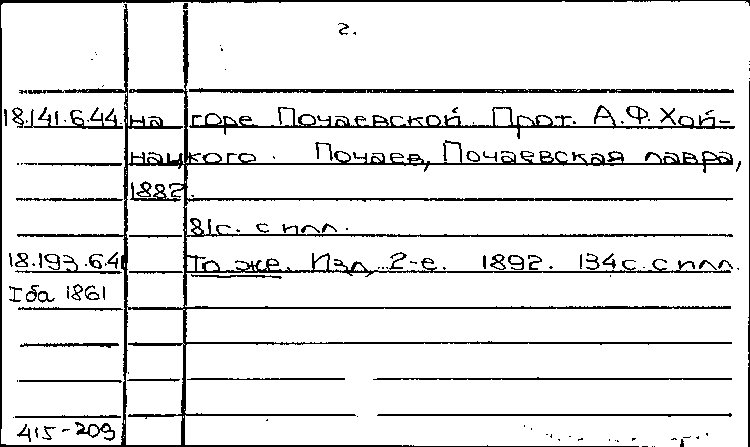 2.
18.141.6.44 на горе Почаевской. Прот. А.Ф. Хой-
нацкого. Почаев, Почаевская лавра,
1882.
81с. с илл.
18.193.6.41 То же. Изд. 2-е. 1892. 134с. с илл.
Iба 1861
415-209